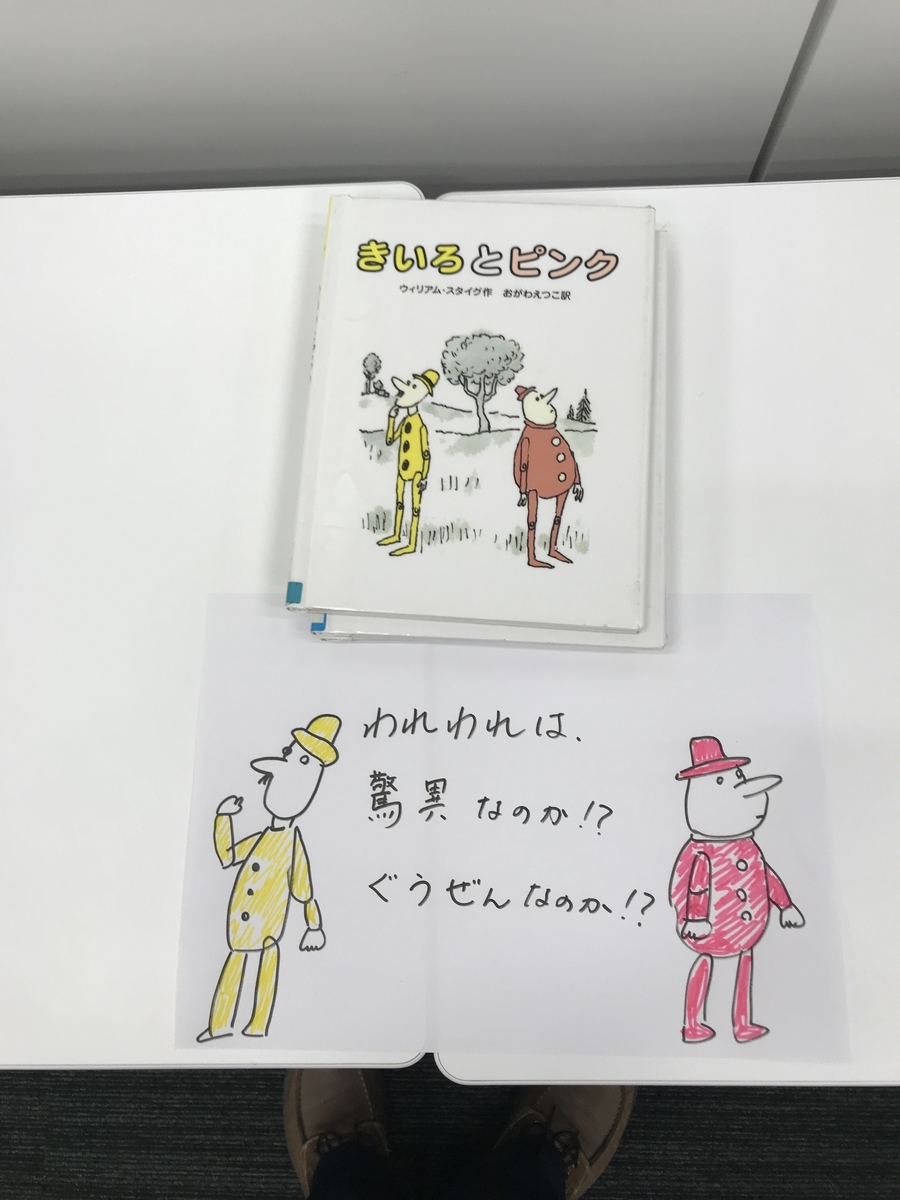 きいろとピンク
ウィリアム・スタイグ作 おがわえつこ訳
われわれは、
驚異なのか!?
ぐうぜんなのか!?